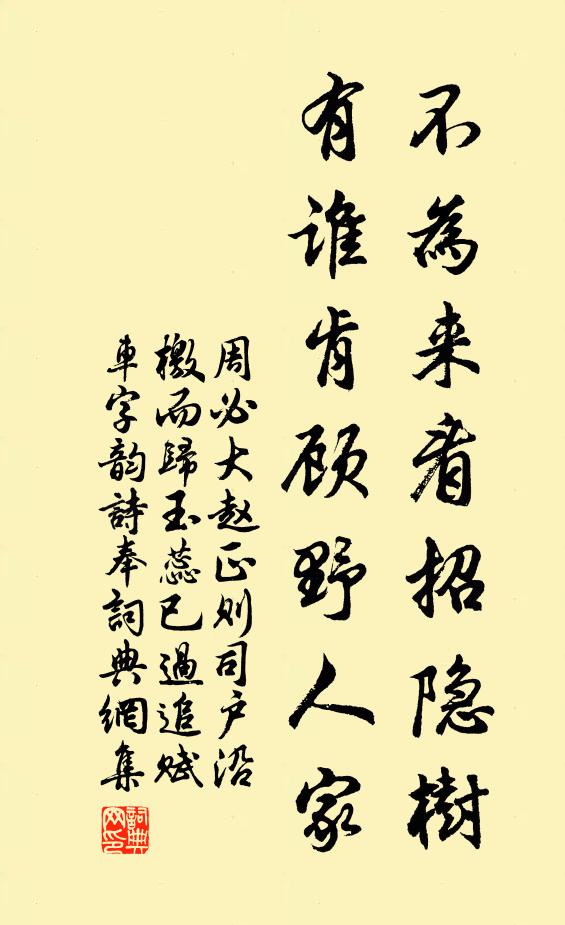 不為来看招隐樹
有誰肯顾野人家
周必大赵正则司户沿
檄而歸玉蕊已過追赋
車字韵詩奉詞典網集
詞典網印